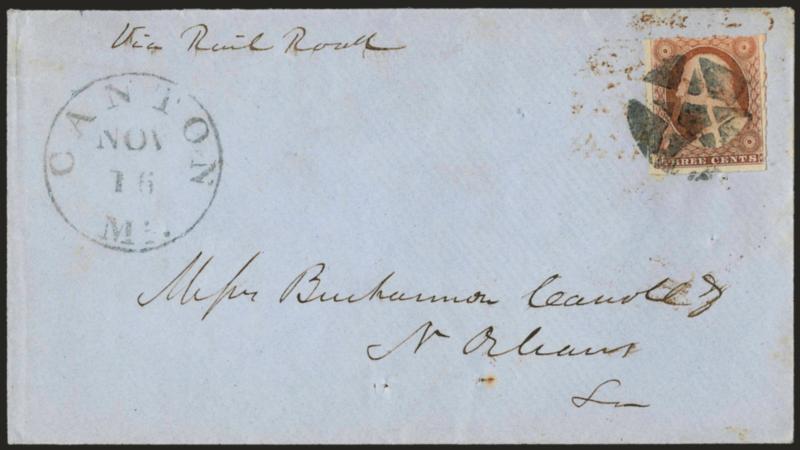 Via Rail Road
CANTON
NOV
16
Mi.
THREE CENTS
Messrs Buchannon Carroll &
N Orleans
La